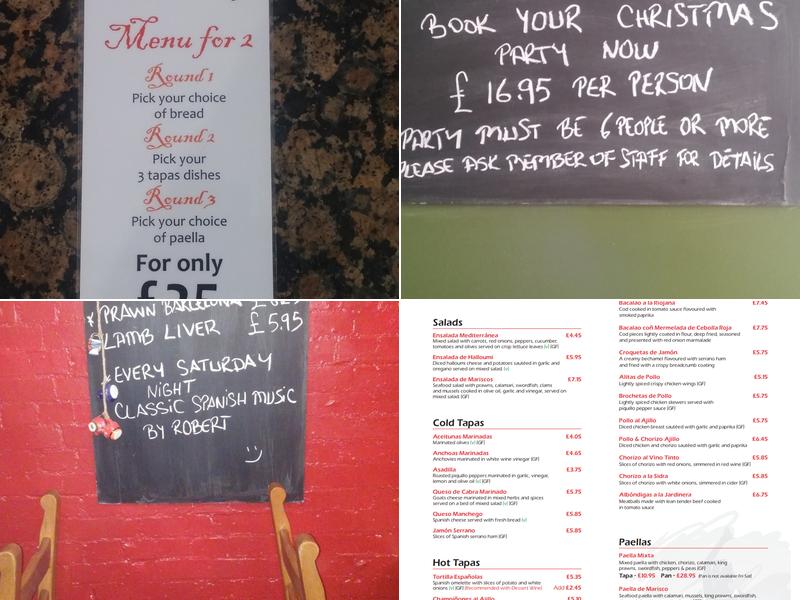 Menu for 2
Round 1
Pick your choice
of bread
Round 2
Pick your
3 tapas dishes
Round 3
Pick your choice
of paella
For only
£35
BOOK YOUR CHRISTMAS
PARTY NOW
£ 16.95 PER PERSON
PARTY MUST BE 6 PEOPLE OR MORE
PLEASE ASK MEMBER OF STAFF FOR DETAILS
PRAWN BARCELONA
LAMB LIVER £5.95
EVERY SATURDAY
NIGHT
CLASSIC SPANISH MUSIC
BY ROBERT
Salads
Ensalada Mediterránea £4.45
Mixed salad with carrots, red onions, peppers, cucumber,
tomatoes and olives served on crisp lettuce leaves (v) (GF)
Ensalada de Halloumi £5.95
Diced halloumi cheese and potatoes sautéed in garlic and
oregano served on mixed salad (v)
Ensalada de Mariscos £7.15
Seafood salad with prawns, calaman, swordfish, clams
and mussels cooked in olive oil, garlic and vinegar, served on
mixed salad (GF)
Cold Tapas
Aceitunas Marinadas £4.05
Marinated olives (v) (GF)
Anchoas Marinadas £4.65
Anchovies marinated in white wine vinegar (GF)
Asadilla £3.75
Roasted piquillo peppers marinated in garlic, vinegar,
lemon and olive oil (v) (GF)
Queso de Cabra Marinado £5.75
Goats cheese marinated in mixed herbs and spices
served on a bed of mixed salad (v) (GF)
Queso Manchego £5.85
Spanish cheese served with fresh bread (v)
Jamón Serrano £5.85
Slices of Spanish serrano ham (GF)
Hot Tapas
Tortilla Españolas £5.35
Spanish omelette with slices of potato and white
onions (v) (GF) (Recommended with Dessert Wine) Add £2.45
Champiñones al Ajillo £5.10
Bacalao a la Riojana £7.45
Cod cooked in tomato sauce flavoured with
smoked paprika
Bacalao coñ Mermelada de Cebolla Roja £7.75
Cod pieces lightly coated in flour, deep fried, seasoned
and presented with red onion marmalade
Croquetas de Jamón £5.75
A creamy bechamel flavoured with serrano ham
and fried with a crispy breadcrumb coating
Alitas de Pollo £5.15
Lightly spiced crispy chicken wings (GF)
Brochetas de Pollo £5.75
Lightly spiced chicken skewers served with
piquillo pepper sauce (GF)
Pollo al Ajillo £5.75
Diced chicken breast sautéed with garlic and paprika (GF)
Pollo & Chorizo Ajillo £6.45
Diced chicken and chorizo sautéed with garlic and paprika
Chorizo al Vino Tinto £5.85
Slices of chorizo with red onions, simmered in red wine (GF)
Chorizo a la Sidra £5.85
Slices of chorizo with white onions, simmered in cider (GF)
Albóndigas a la Jardinera £6.75
Meatballs made with lean tender beef cooked
in tomato sauce
Paellas
Paella Mixta
Mixed paella with chicken, chorizo, calaman, king
prawns, swordfish, peppers & peas (GF)
Tapa - £10.95 Pan - £28.95 (Pan is not available Fri Sat)
Paella de Marisco
Seafood paella with calaman, mussels, king prawns, swordfish,